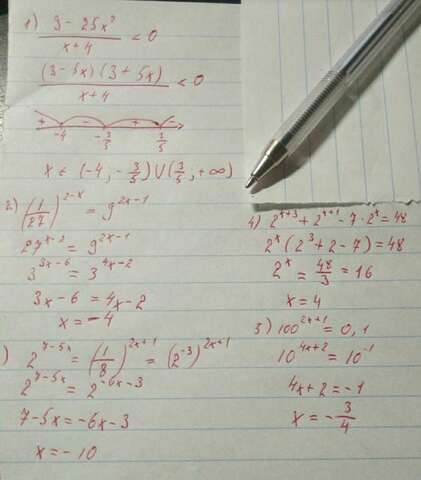 1) (9 - 25x²)/(x+4) < 0
((3-5x)(3+5x))/(x+4) < 0
+ - + -
-4 -3/5 3/5
x ∈ (-4, -3/5) ∪ (3/5, +∞)
2) (1/27)^(2-x) = 9^(2x-1)
27^(x-2) = 9^(2x-1)
3^(3x-6) = 3^(4x-2)
3x-6 = 4x-2
x = -4
) 2^(7-5x) = (1/8)^(2x+1) = (2^(-3))^(2x+1)
2^(7-5x) = 2^(-6x-3)
7-5x = -6x-3
x = -10
4) 2^(x+3) + 2^(x+1) - 7·2^x = 48
2^x (2^3 + 2 - 7) = 48
2^x = 48/3 = 16
x = 4
5) 100^(2x+1) = 0,1
10^(4x+2) = 10^(-1)
4x+2 = -1
x = -3/4